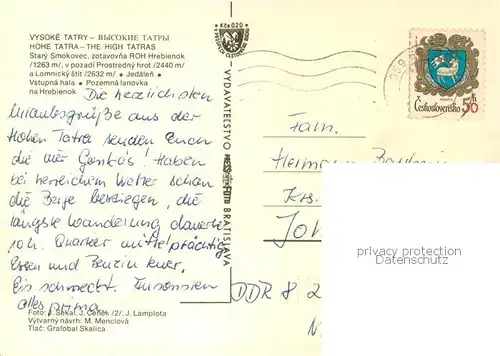 VYSOKÉ TATRY – ВЫСОКИЕ ТАТРЫ
HOHE TATRA – THE HIGH TATRAS
Starý Smokovec, zotavovňa ROH Hrebienok
/1263 m/, v pozadí Prostredný hrot /2440 m/
a Lomnický štít /2632 m/ • Jedáleň •
Vstupná hala • Pozemná lanovka
na Hrebienok
Die herzlichsten
Urlaubsgrüße aus der
Hohen Tatra senden Euch
die vier! Haben
bei herrlichem Wetter schon
die Berge bestiegen, die
längste Wanderung dauerte
10 h. Quartier mittelprächtig
Essen und Benzin teuer.
Eis schmeckt. Ansonsten
alles prima.
Foto: J. Sekal, J. Čeněk /2/, J. Lamplota
Výtvarný návrh: M. Menclová
Tlač: Grafobal Skalica
Kčs 0,20
VYDAVATEĽSTVO
BRATISLAVA
Československo 50h
Fam.
Hermann
Krs.
DDR 8 2
privacy protection
oldthing.de